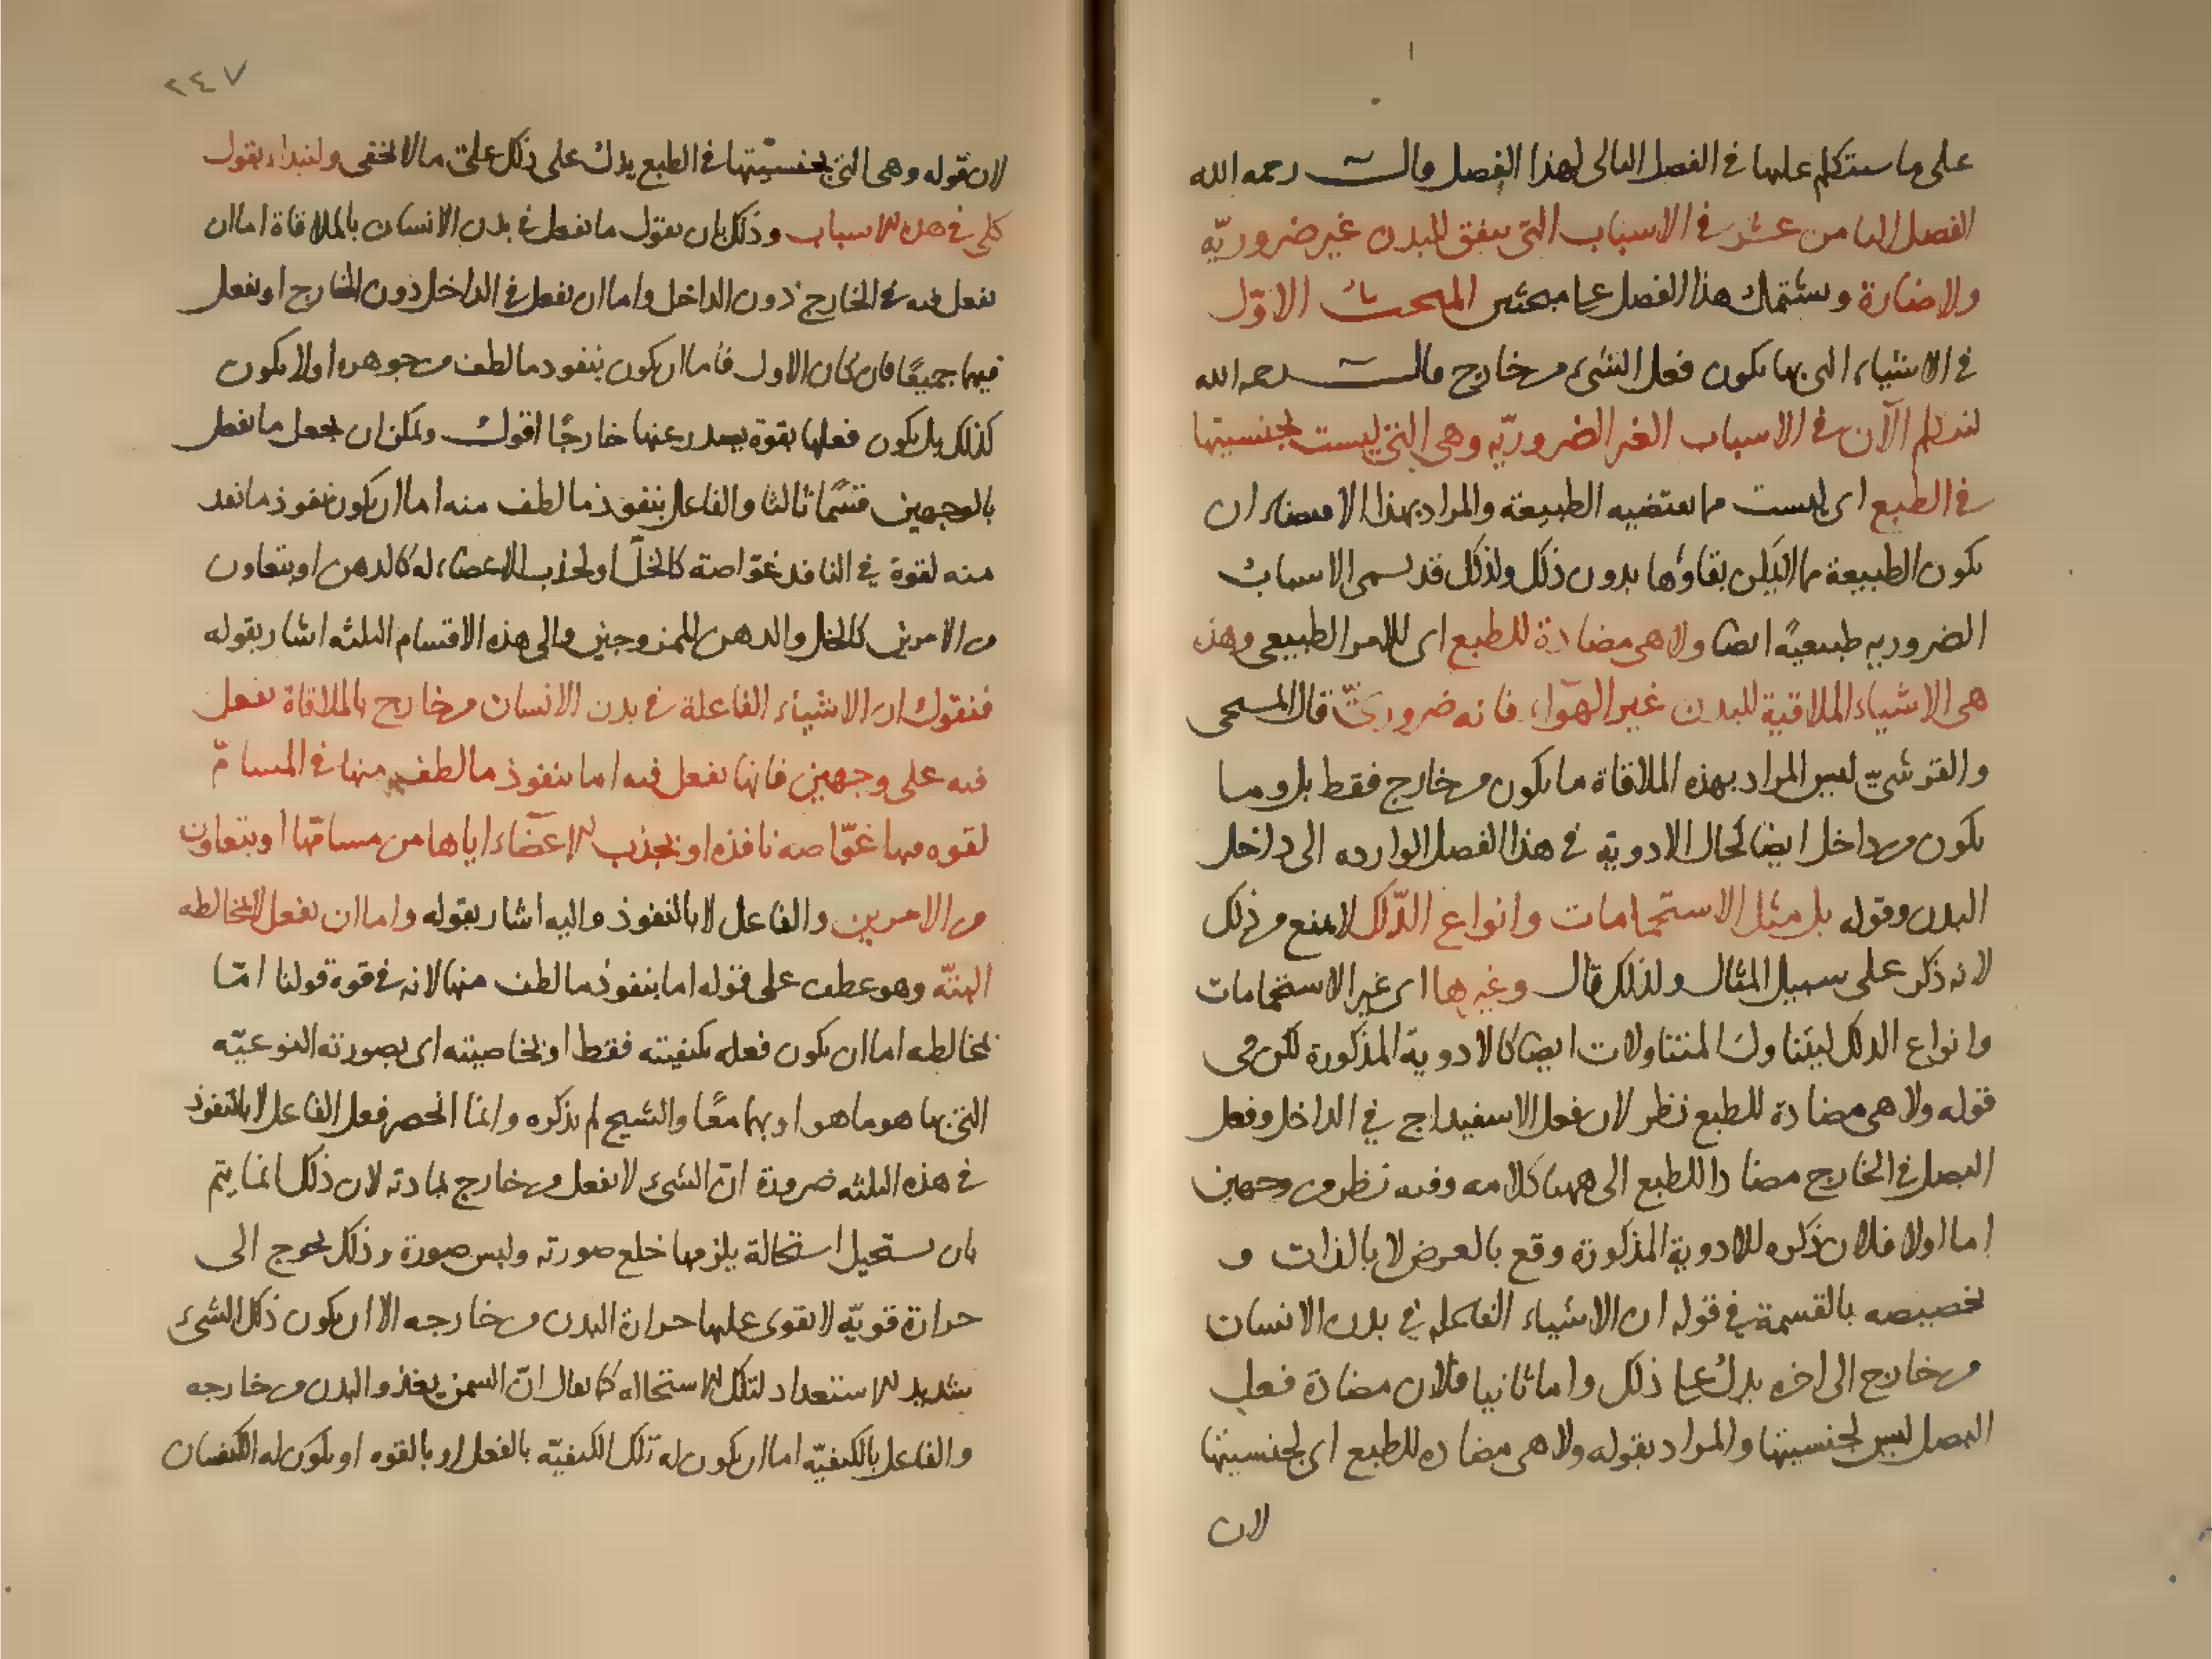 على ما سنتكلم عليها في الفصل التالي لهذا الفصل قالـــ رحمه الله
الفصل الثامن عشر في الاسباب التي تتفق للبدن غير ضروريّة
ولا ضارة ويشتمل هذا الفصل على مبحثين المبحث الاوّل
في الاشياء التي بها يكون فعل الشيء من خارج قالـــ رحمه الله
لنتكلم الآن في الاسباب الغير الضروريّة وهي التي ليست بجنسيتها
في الطبع اى ليست مما تقتضيه الطبيعة والمراد بهذا الاقتضاء ان
تكون الطبيعة مما لا يمكن بقاؤها بدون ذلك ولذلك قد تسمى الاسباب
الضرورية طبيعيّة ايضا ولا هى مضادة للطبع اى للامر الطبيعى وهذه
هى الاشياء الملاقية للبدن غير الهواء فانه ضرورىّ قال المسيحى
والقرشىّ ليس المراد بهذه الملاقاة ما يكون من خارج فقط بل وما
يكون من داخل ايضا كحال الادوية في هذا الفصل الوارده الى داخل
البدن وقوله بل مثل الاستحمامات وانواع الدّلك لا يمنع من ذلك
لانه ذكر على سبيل المثال ولذلك قال وغيرها اى غير الاستحمامات
وانواع الدلك ليتناول المتناولات ايضا كالادوية المذكورة لكن في
قوله ولا هى مضادة للطبع نظر لان فعل الاسفيداج في الداخل وفعل
البصل في الخارج مضادا للطبع الى ههنا كلامه وفيه نظر من وجهين
اما اولا فلان ذكره للادوية المذكورة وقع بالعرض لا بالذات و
تخصيصه بالقسمة في قوله ان الاشياء الفاعله في بدن الانسان
من خارج الى اخره يدل على ذلك واما ثانيا فلان مضادة فعل
البصل ليس لجنسيتها والمراد بقوله ولا هى مضاده للطبع اى لجنسيتها
لان
٢٤٧
لان قوله وهى التى بجنسيّتها في الطبع يدل على ذلك على ما لا يخفى ولنبداء بقول
كلى في هذه الاسباب وذلك بان نقول ما يفعل في بدن الانسان بالملاقاة اما ان
يفعل فيه في الخارج دون الداخل واما ان يفعل في الداخل دون الخارج او يفعل
فيهما جميعًا فان كان الاول فاما ان يكون بنفوذ ما لطف من جوهره او لا يكون
كذلك بل يكون فعلها بقوة يصدر عنها خارجًا اقول ويمكن ان يجعل ما يفعل
بالوجهين قسمًا ثالثا والفاعل بنفوذ ما لطف منه اما ان يكون نفوذ ما نفذ
منه لقوة في النافذ غوّاصة كالخلّ او لجذب الاعضاء له كالدهن او بتعاون
من الامرين كالخل والدهن الممزوجين والى هذه الاقسام الثلثه اشار بقوله
فنقول ان الاشياء الفاعلة في بدن الانسان من خارج بالملاقاة تفعل
فيه على وجهين فانها تفعل فيه اما بنفوذ ما لطف منها في المسامّ
لقوه فيها غوّاصه نافذه او بجذب الاعضاء اياها من مسامّها او بتعاون
من الامرين والفاعل لا بالنفوذ واليه اشار بقوله واما ان تفعل لا بمخالطه
البتّه وهو عطف على قوله اما بنفوذ ما لطف منها لانه في قوة قولنا امّا
بمخالطه اما ان يكون فعله بكيفيته فقط او بخاصيته اى بصورته النوعيّه
التى بها هو ما هو او بهما معًا والشيخ لم يذكره وانما انحصر فعل الفاعل لا بالنفوذ
في هذه الثلثه ضرورة انّ الشىء لا يفعل من خارج بمادته لان ذلك انما يتم
بان يستحيل استحالة يلزمها خلع صورته ولبس صورة وذلك يحوج الى
حرارة قويّه لا تقوى عليها حرارة البدن من خارجه الا ان يكون ذلك الشىء
شديد الاستعداد لتلك الاستحاله كما يقال انّ السمن يغذو البدن من خارجه
والفاعل بالكيفيّه اما ان يكون له تلك الكيفيّه بالفعل او بالقوه او يكون له الكيفيتان